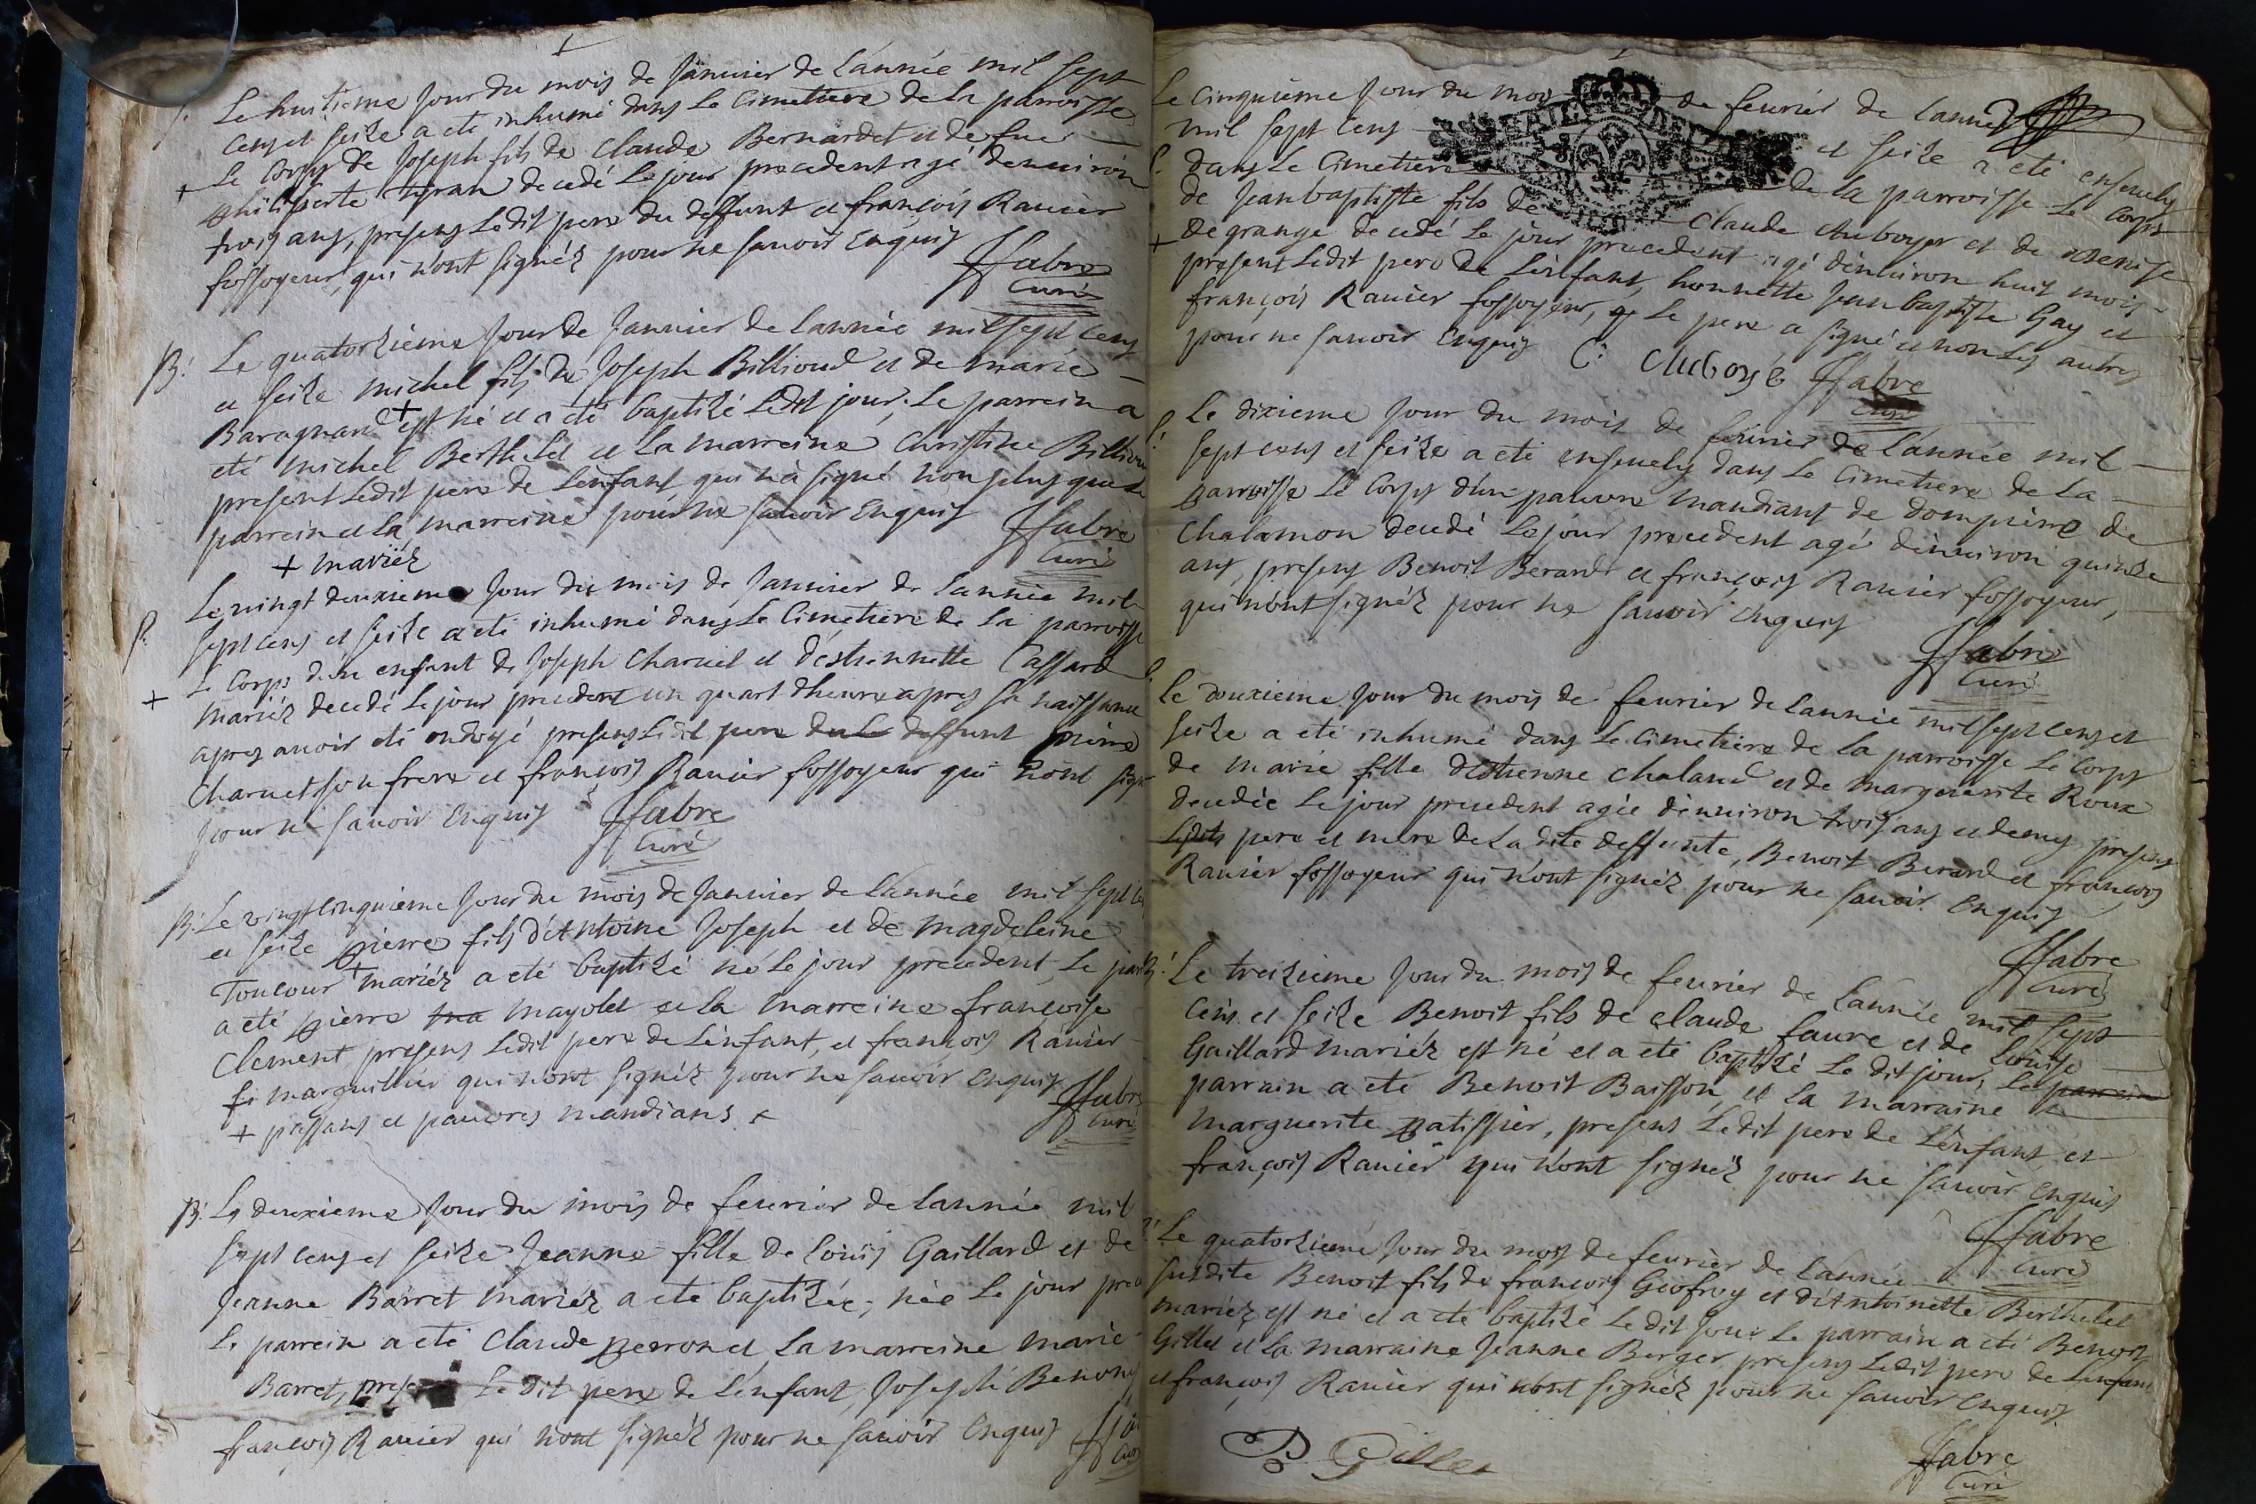 S. Le huitieme Jour du mois de Januier de l'année mil sept
cens et seize a eté inhumé dans le Cimetiere de la parroisse
+ le Corps de Joseph fils de Claude Bernardet et de fue
philiberte decedé le jour precedent agé denuiron
trois ans, presens Ledit pere du deffunt et françois Rauier
fossoyeur, qui n'ont signéz pour ne sauoir Enquis
ffabre
Curé
B. Le quatorzieme Jour de Januier de l'année mil sept cens
et seize michel fils de Joseph Billioud et de marie
Baragnand + est né et a eté baptizé Ledit jour. Le parrein a
eté michel Berthelet et La marreine Christine Billioud
present Ledit pere de L'enfant qui n'a signé non plus que le
parrein et la marreine pour ne sauoir Enquis
ffabre
Curé
+ mariéz
S. Le vingt deuxieme Jour du mois de Januier de L'année mil
sept cens et seize a eté inhumé dans Le Cimetiere de La parroisse
+ Le Corps d'un enfant de Joseph Charuet et d'estiennette Cassard
mariéz decedé Le jour precedent un quart dheure apres sa naissance
apres auoir eté ondoyé presens Ledit pere du Le deffunt
Charuet son frere et françois Rauier fossoyeur qui n'ont signé
pour ne sauoir Enquis
ffabre
Curé
B. Le vingt cinquieme Jour du mois de Januier de L'année mil sept cens
et seize pierre fils d'Antoine Joseph et de magdeleine
Toucour + mariéz a eté baptizé né le jour precedent, Le par
a eté pierre ma mayolet et la marreine françoise
Clement presens Ledit pere de L'enfant, et françois Rauier
marguillier qui n'ont signéz pour ne sauoir enquis
ffabre
Curé
+ passans et pauures mandians. +
B. Le deuxieme Jour du mois de feurier de lannée mil
sept cens et seize Jeanne fille de Loüis Gaillard et de
Jeanne Barret mariéz a eté baptizée, née Le jour prece
Le parrein a eté Claude perron et La marreine marie
Barret, presens Le dit pere de L'enfant, Joseph Benony
françois Rauier qui n'ont signéz pour ne sauoir Enquis
Le Cinquieme Jour du mois de feurier de L'année
mil sept cens et seize a eté enseuely
dans Le Cimetiere de la parroisse Le Corps
de Jean baptiste fils de Claude Auboyer et de Denise
+ degrange decedé Le jour precedent agé denuiron huit mois
presens Ledit pere de L'enfant, honnette Jean baptiste Gay et
françois Rauier fossoyeur, Le pere a signé et non Les autres
pour ne sauoir Enquis
C. Auboye
ffabre
Curé
Le dixieme Jour du mois de feurier de L'année mil
sept cens et seize a eté enseuely dans Le Cimetiere de La
parroisse Le Corps d'un pauure mandiant de dompierre de
Chalamon decedé Le jour precedent agé denuiron quinze
ans presens Benoit Berard et françois Rauier fossoyeur,
qui n'ont signéz pour ne sauoir enquis
ffabre
Curé
Le douzieme Jour du mois de feurier de L'année mil sept cens et
seize a eté inhumé dans Le Cimetiere de La parroisse Le Corps
de marie fille d'estienne Chaland et de marguerite Roux
decedée Le jour precedent agée denuiron trois ans et demy presens
Lesdits pere et mere de La dite deffunte, Benoit Berard et françois
Rauier fossoyeur qui n'ont signéz pour ne sauoir Enquis
ffabre
Curé
B. Le treizieme Jour du mois de feurier de L'année mil sept
cens et seize Benoit fils de Claude faure et de Loüise
Gaillard mariéz est né et a eté baptizé Le dit jour, Le parrein
parrain a eté Benoit Baisson, et La marraine
marguerite patissier, presens Ledit pere de L'enfant, et
françois Rauier qui n'ont signéz pour ne sauoir enquis
ffabre
Curé
Le quatorzieme Jour du mois de feurier de L'année
susdite Benoit fils de françois Geofroy et d'Antoinette Berthelet
mariéz est né et a eté baptizé Le dit jour Le parrain a eté Benoit
Gillet et La marraine Jeanne Berger presens Ledit pere de L'enfant
et françois Rauier qui n'ont signéz pour ne sauoir Enquis
B Gillet
ffabre
Curé